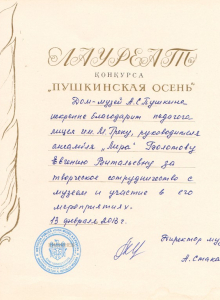 ЛАУРЕАТ
КОНКУРСА
„ПУШКИНСКАЯ ОСЕНЬ”
Дом-музей А.С. Пушкина
искренне благодарит педагога
лицея им. М. Греку, руководителя
ансамбля „Лира”
Евгению Витальевну за
творческое сотрудничество с
музеем и участие в его
мероприятиях.
13 февраля 2013 г.
Директор му